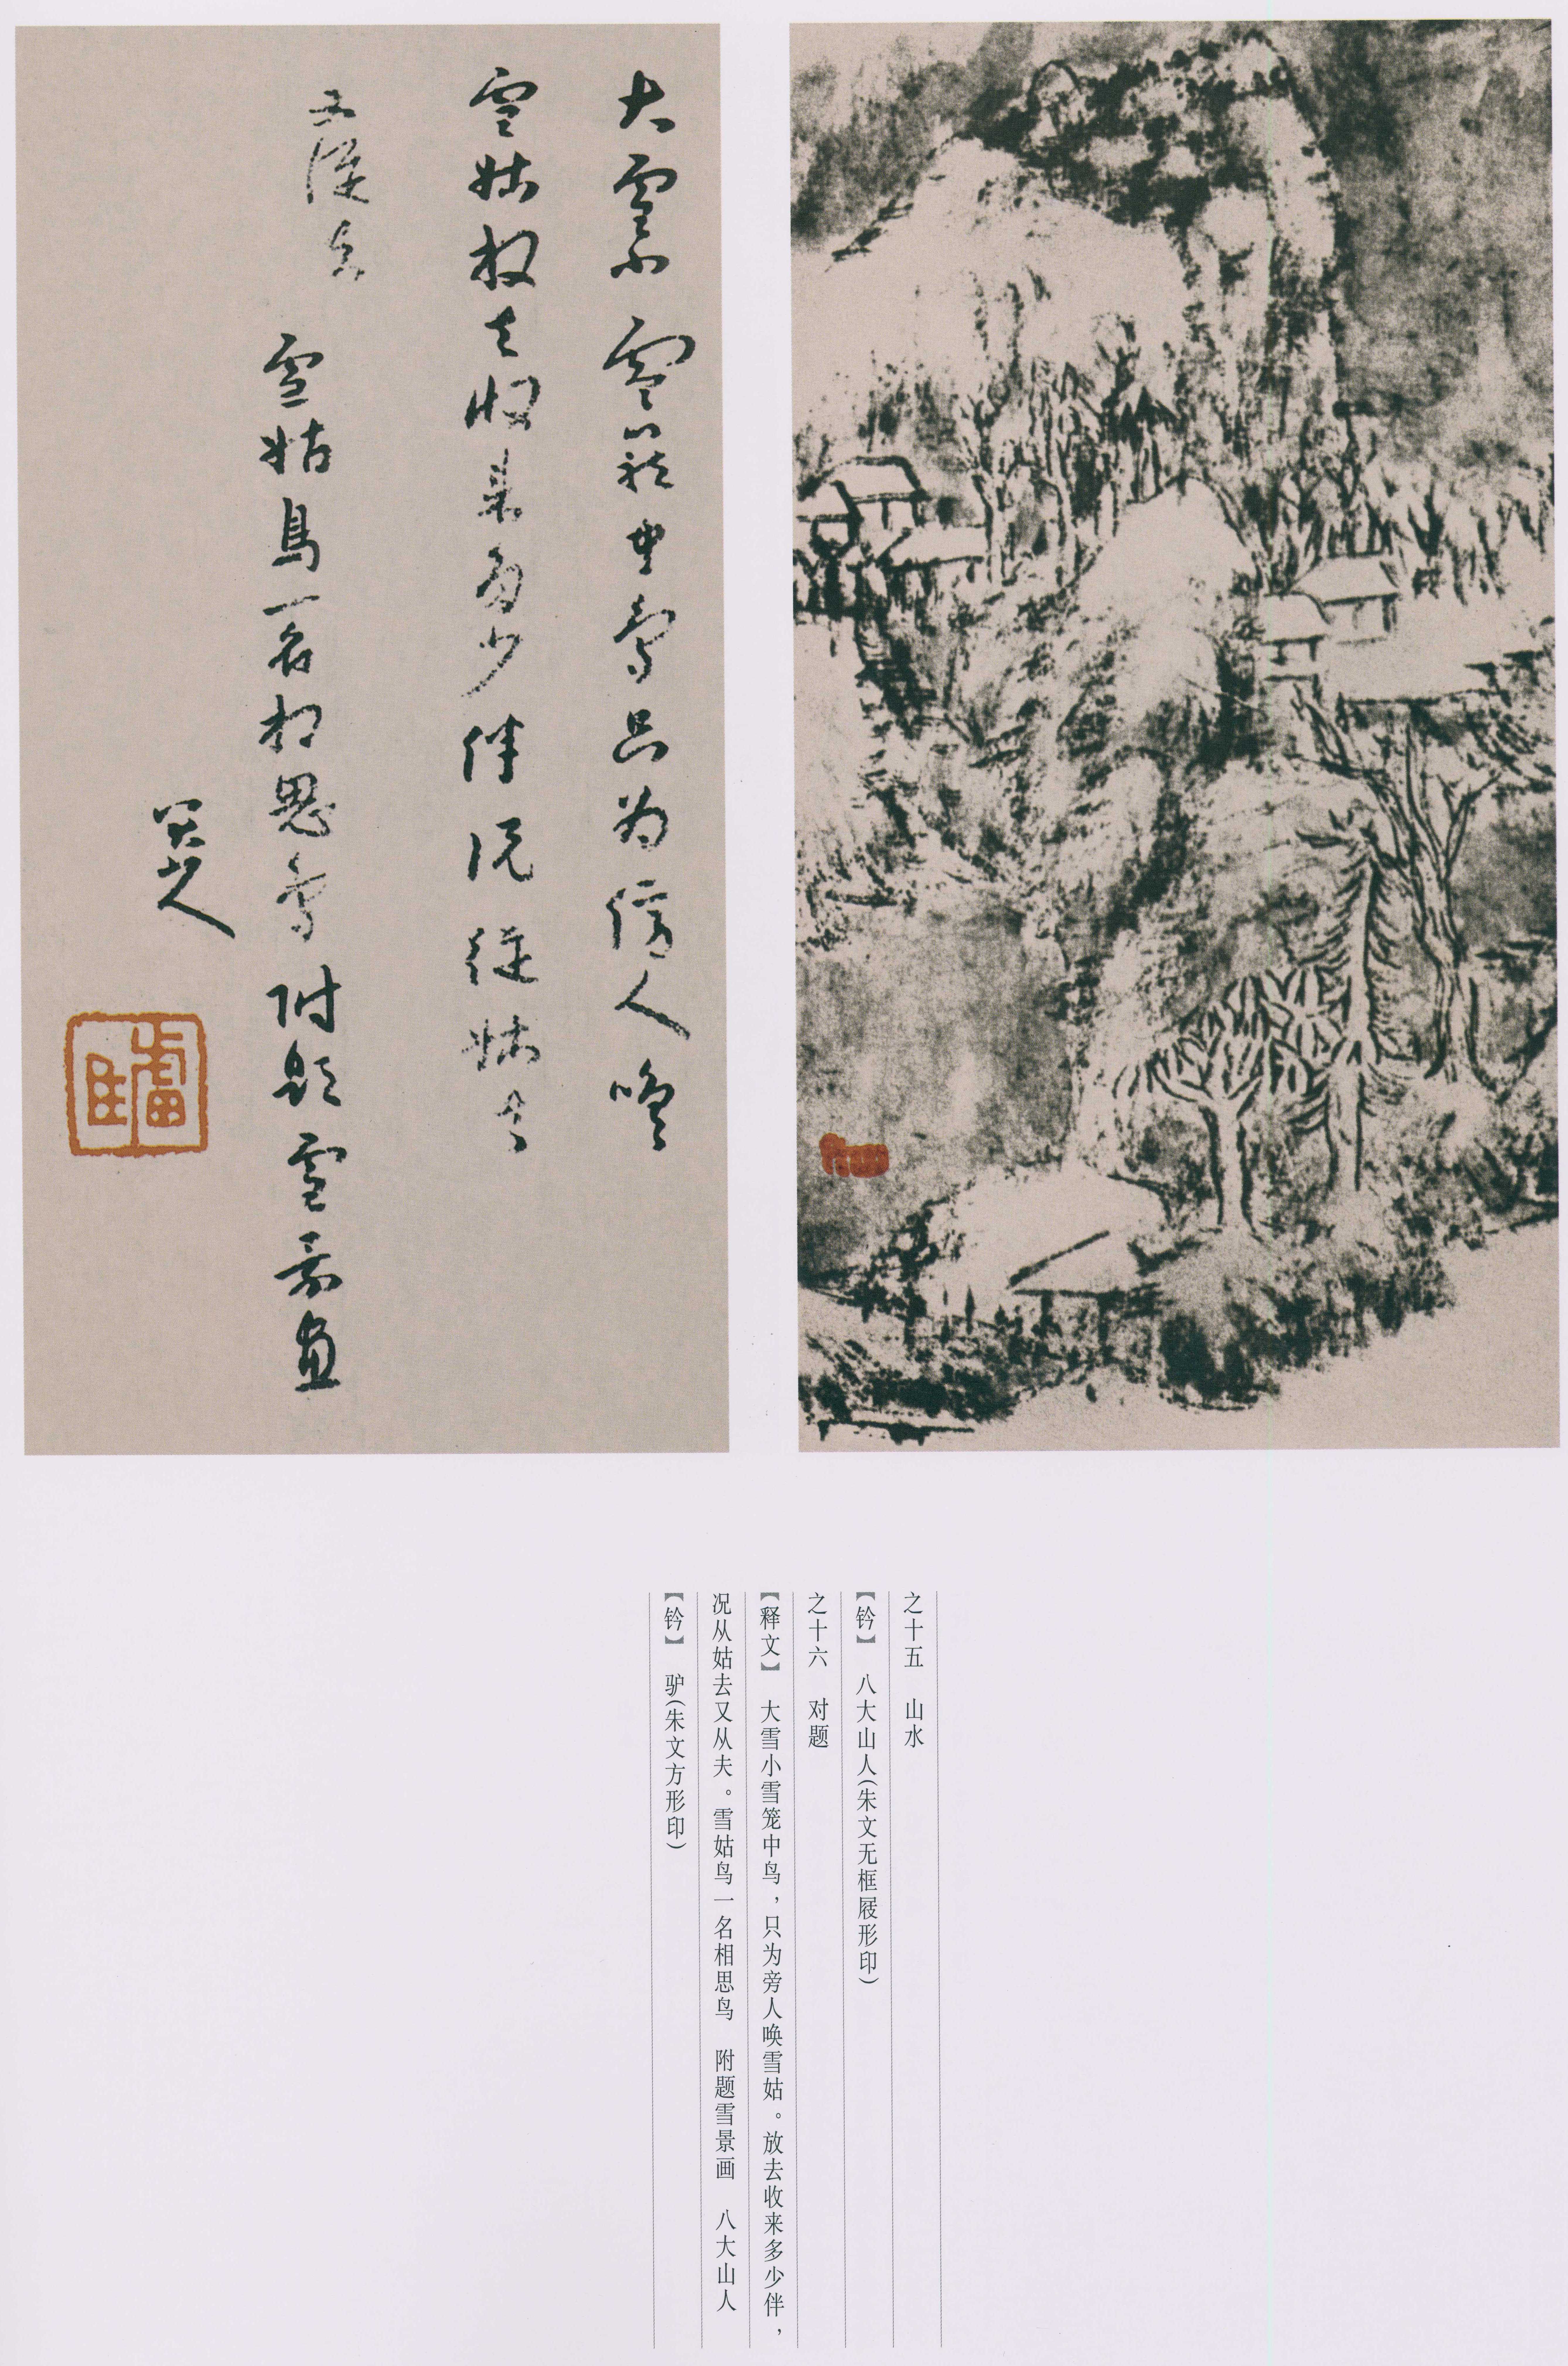 大雪小雪籠中鳥只为傍人喚
雪姑放去收来多少伴况従姑去
又従夫
雪姑鳥一名相思鳥附题雪景畫
八大山人
驴
之十五　山水
【钤】　八大山人(朱文无框屐形印)
之十六　对题
【释文】　大雪小雪笼中鸟，只为旁人唤雪姑。放去收来多少伴，
况从姑去又从夫。雪姑鸟一名相思鸟　附题雪景画　八大山人
【钤】　驴(朱文方形印)